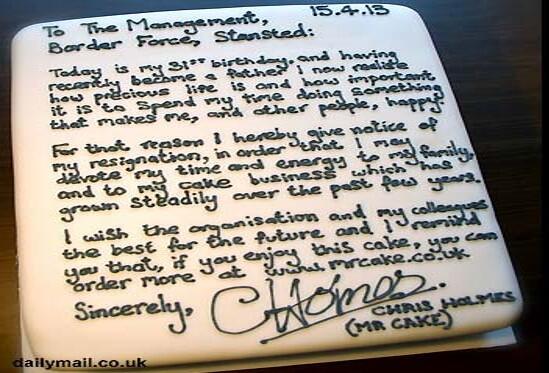 15.4.13
To The Management,
Border Force, Stansted:
Today is my 31st birthday, and having
recently become a father I now realise
how precious life is and how important
it is to spend my time doing something
that makes me, and other people, happy.
For that reason I hereby give notice of
my resignation, in order that I may
devote my time and energy to my family,
and to my cake business which has
grown steadily over the past few years.
I wish the organisation and my colleagues
the best for the future and I remind
you that, if you enjoy this cake, you can
order more at www.mrcake.co.uk
Sincerely,
CHolmes
CHRIS HOLMES
(MR CAKE)
dailymail.co.uk